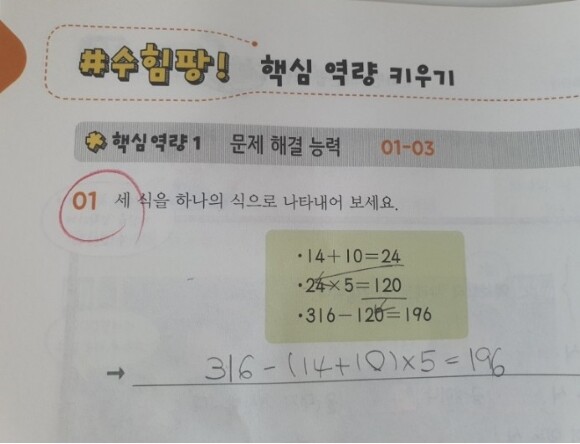 #수힘팡! 핵심 역량 키우기
핵심역량1 문제 해결 능력 01-03
01 세 식을 하나의 식으로 나타내어 보세요.
·14+10=24
·24×5=120
·316-120=196
→ 316-(14+10)×5=196